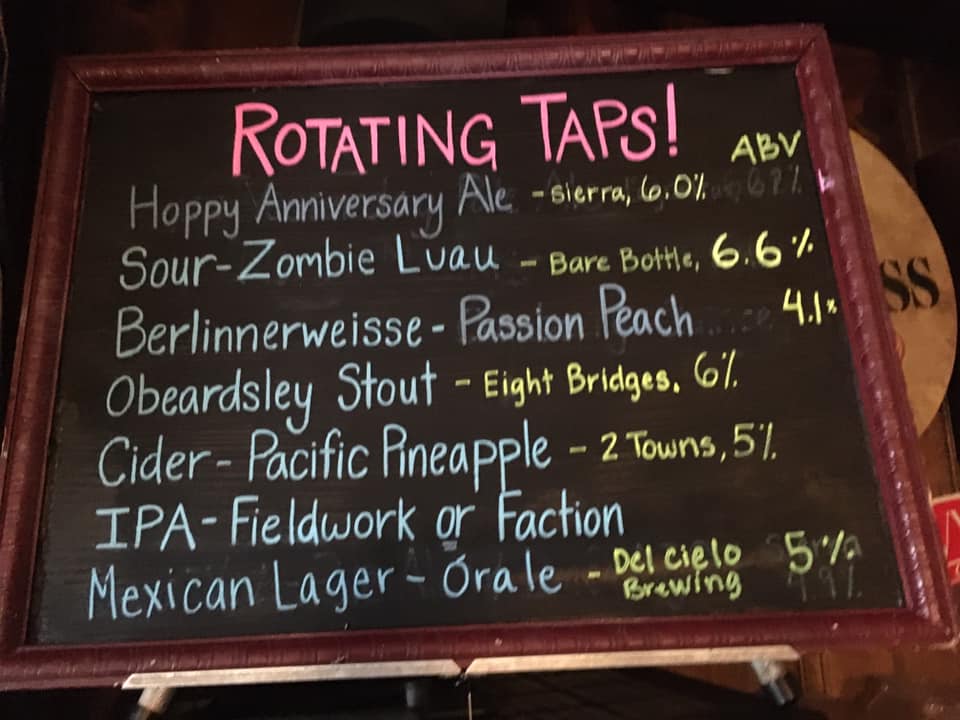 ROTATING TAPS!
ABV
Hoppy Anniversary Ale - Sierra, 6.0%
Sour-Zombie Luau - Bare Bottle, 6.6%
Berlinnerweisse - Passion Peach 4.1%
Obeardsley Stout - Eight Bridges. 6%
Cider - Pacific Pineapple - 2 Towns, 5%
IPA - Fieldwork or Faction
Mexican Lager - Órale - Del Cielo Brewing 5%
SS